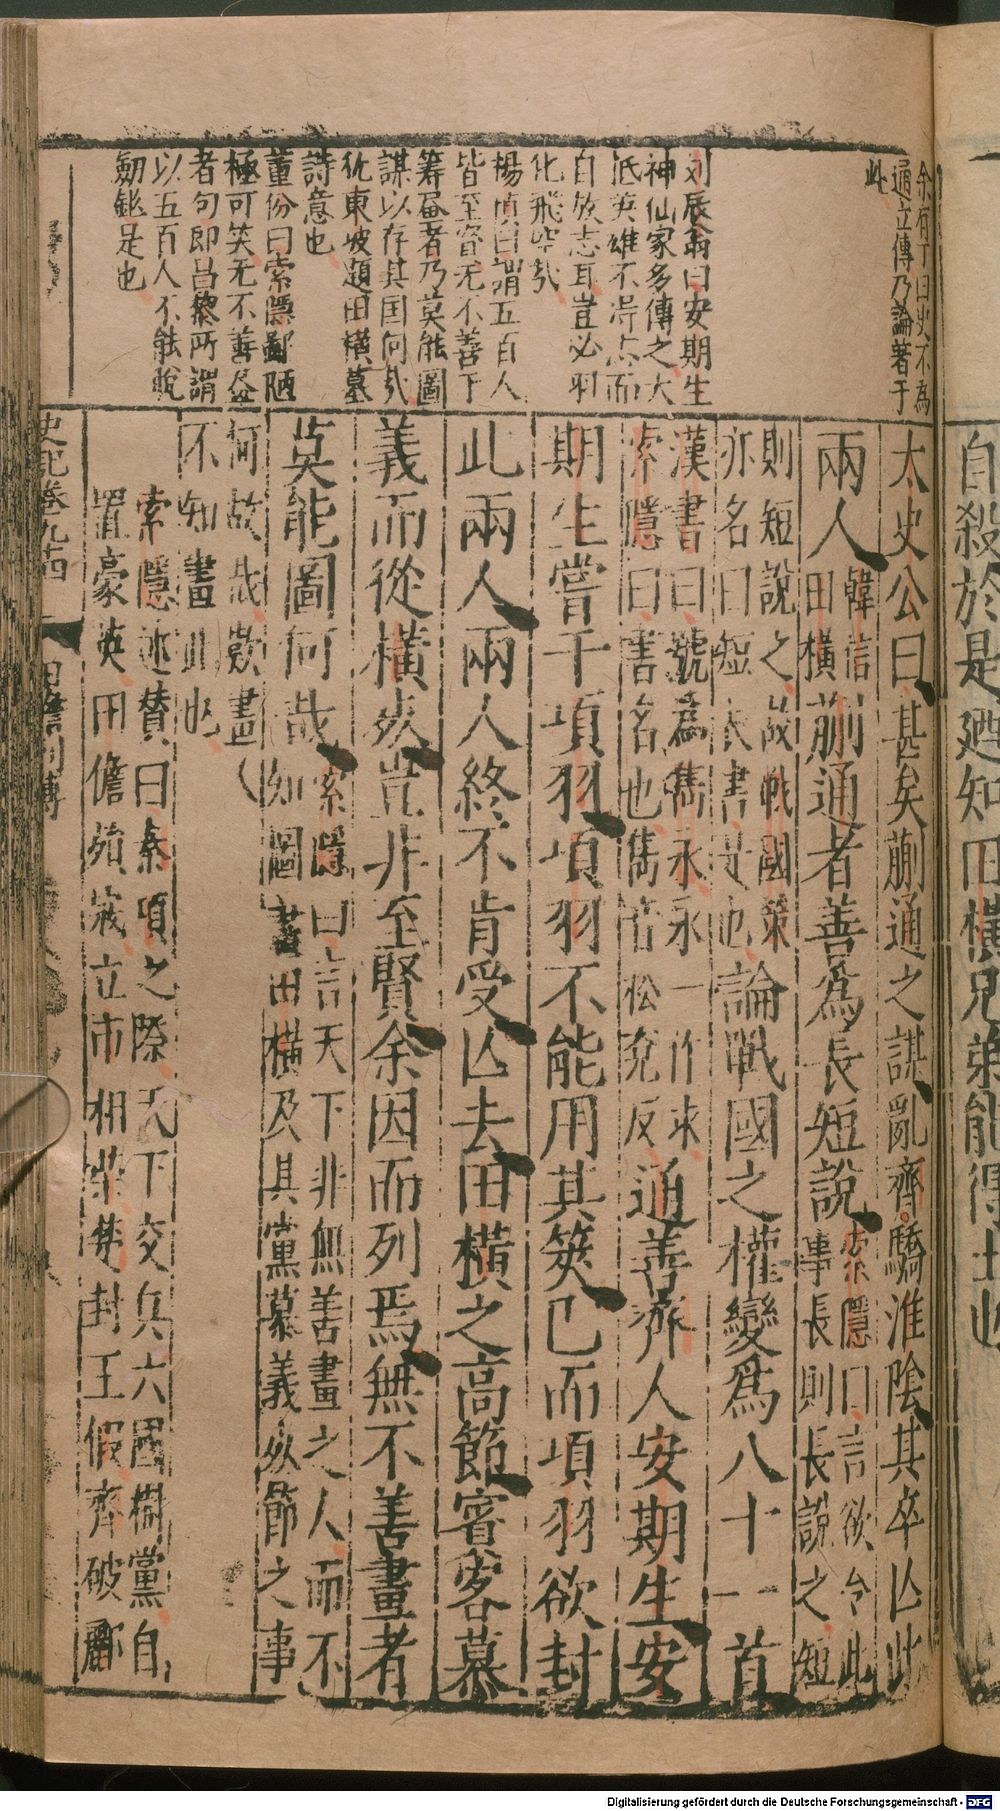 自殺於是廼知田橫兄弟能得士也
余有丁曰史不為
通立傳乃論著于
此
刘辰翁曰安期生
神仙家多傳之大
泜英雄不淂志而
自放志耳豈必羽
化飛空㢤
楊慎曰謂五百人
皆至賢无不善于
筹画者乃莫能圖
謀以存其国何㢤
犹東坡題田横墓
詩意也
董份曰索隱鄙陋
極可笑无不善盖
者句即昌黎所謂
以五百人不能脫
劔鋩是也
太史公曰甚矣蒯通之謀亂齊驕淮陰其卒亾此
兩人韓信
田橫蒯通者善爲長短說索隱曰言欲令此
事長則長說之短
則短說之故戰國策
亦名曰短長書是也論戰國之權變爲八十一首
漢書曰號爲雋永永一作求
索隱曰書名也雋音松兖反通善齊人安期生安
期生嘗干項羽項羽不能用其筴已而項羽欲封
此兩人兩人終不肯受亾去田橫之高節賓客慕
義而從橫死豈非至賢余因而列焉無不善畫者
莫能圖何哉索隱曰言天下非無善畫之人而不
知圖畫田橫及其黨慕義死節之事
何故哉歎畫人
不知畫此也
索隱述贊曰秦項之際天下交兵六國樹黨自
置豪英田儋殞寇立市相榮楚封王假齊破酈
史記卷九十四 田儋列傳
Digitalisierung gefördert durch die Deutsche Forschungsgemeinschaft - DFG